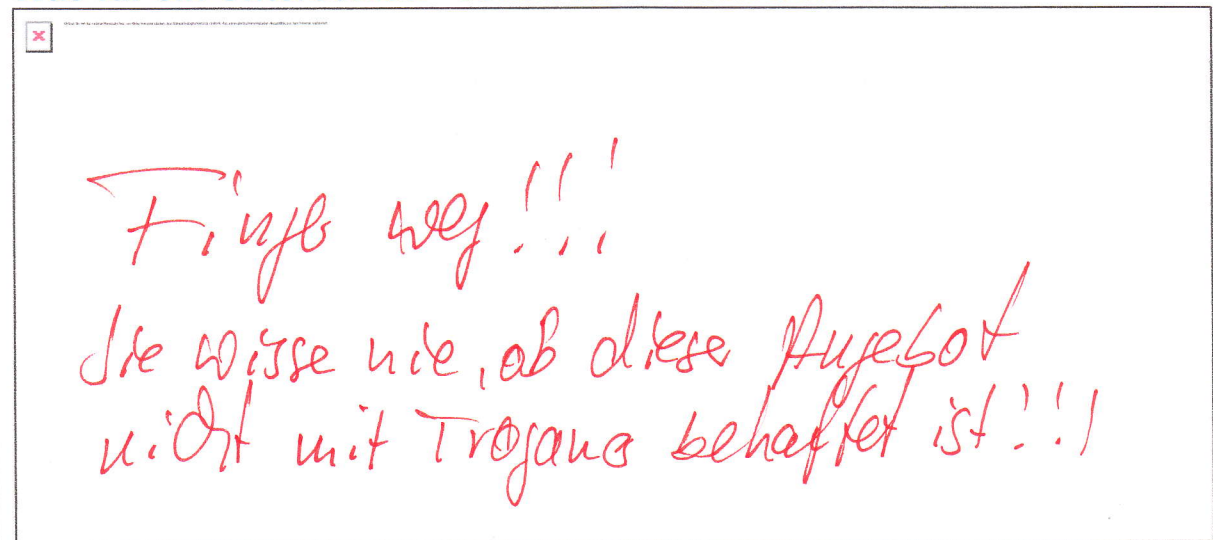 Finger weg!!!
Sie wisse nie, ob dieses Angebot
nicht mit Trojans behaftet ist!!!